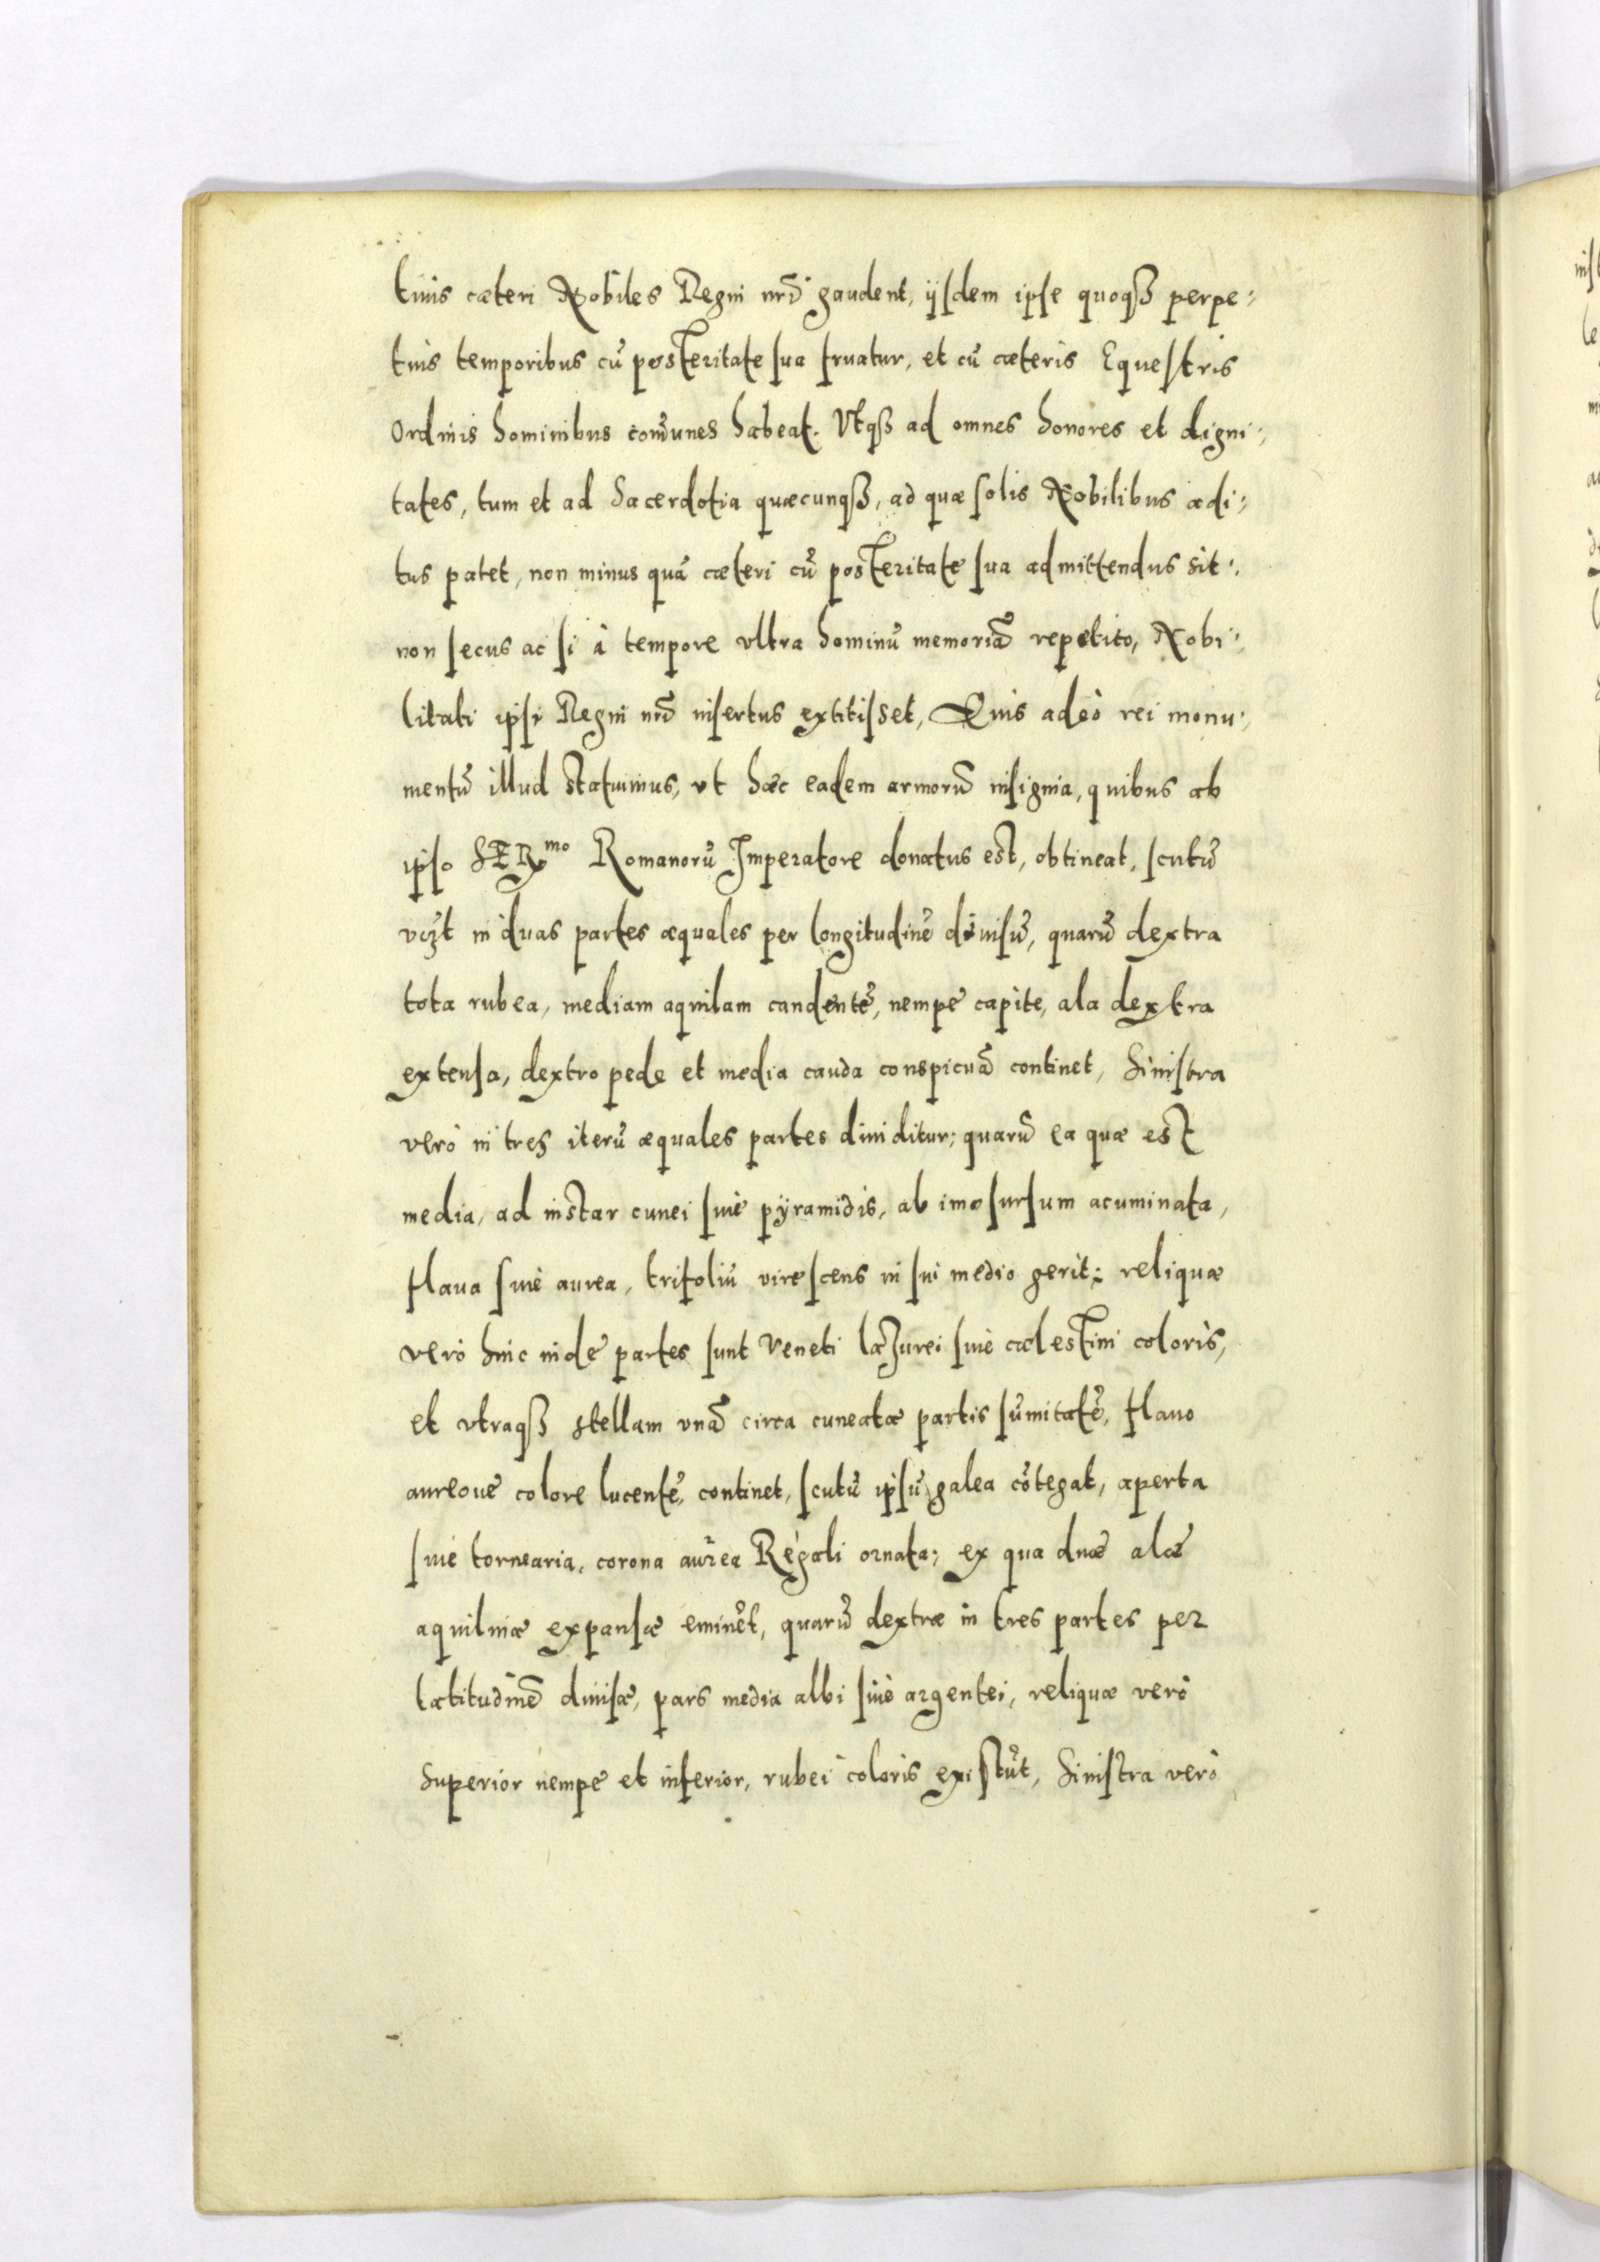 tiuis cæteri Nobiles Regni nrĩ gaudent, ijsdem ipse quoqꝫ perpe-
tuis temporibus cũ posteritate sua fruatur, et cũ cæteris Equestris
Ordinis hominibus comũnes habeat. Vtqꝫ ad omnes honores et digni-
tates, tum et ad Sacerdotia quæcunqꝫ, ad quæ solis Nobilibus adi-
tus patet, non minus quã cæteri cũ posteritate sua admittendus sit.
non secus ac si à tempore vltra hominũ memoriã repetito, Nobi-
litati ipsi Regni nrĩ insertus extitisset, Cuius adeò rei monu-
mentũ illud statuimus, vt hæc eadem armorũ insignia, quibus ab
ipso SERmo Romanorũ Imperatore donatus est, obtineat, scutũ
vizt in duas partes æquales per longitudinẽ diuisũ, quarũ dextra
tota rubea, mediam aquilam candentẽ, nempe capite, ala dextra
extensa, dextro pede et media cauda conspicuã continet, Sinistra
verò in tres iterũ æquales partes diuiditur; quarũ ea quæ est
media, ad instar cunei siue pÿramidis, ab imo sursum acuminata,
flaua siue aurea, trifoliũ virescens in sui medio gerit; reliquæ
verò hinc inde partes sunt Veneti lazurei siue cælestini coloris,
et vtraqꝫ stellam vnã circa cuneatæ partis sũmitatẽ, flauo
aureoue colore lucentẽ, continet, scutũ ipsũ galea cõtegat, aperta
siue tornearia, corona aurea Regali ornata; ex qua duæ alæ
aquilinæ expansæ eminẽt, quarũ dextræ in tres partes per
latitudinẽ diuisæ, pars media albi siue argentei, reliquæ verò
superior nempe et inferior, rubei coloris existũt, Sinistra verò